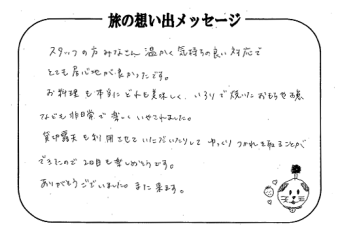 旅の想い出メッセージ
スタッフの方みなさん 温かく気持ちの良い対応で
とても居心地が良かったです。
お料理も本当にどれも美味しく、いろりで焼いたおもちや
なども非日常で楽しく いやされました。
貸切露天も利用させていただいたりして ゆっくり つかれを取ることが
できたので 2日目も楽しめそうです。
ありがとうございました。また来ます。